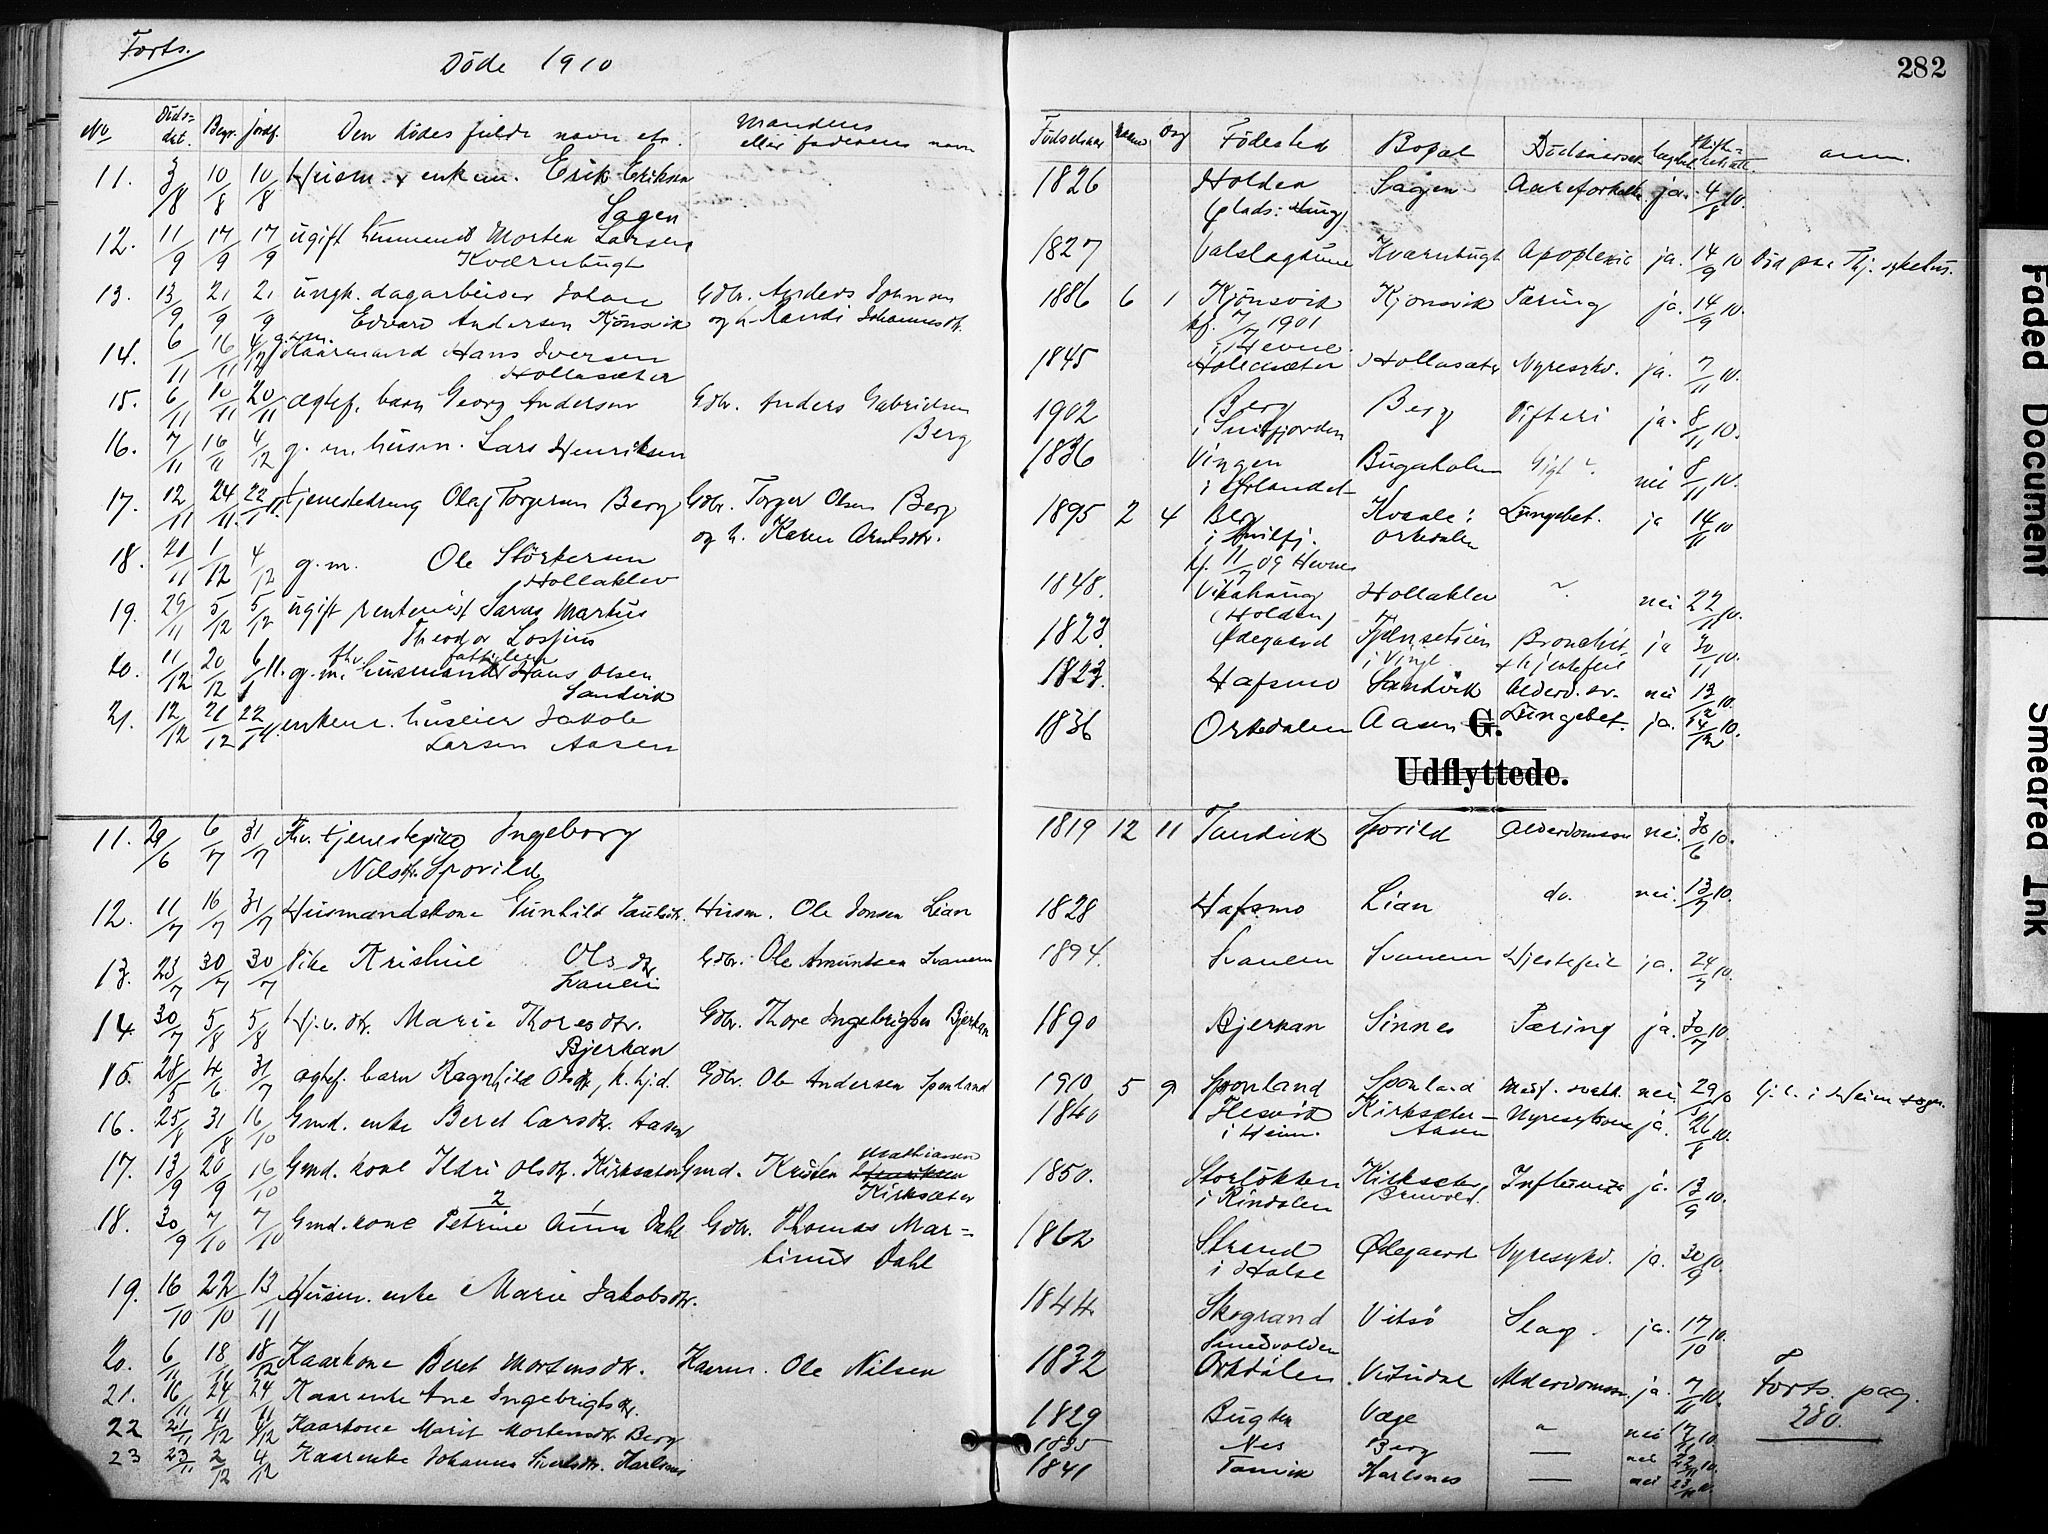 Forts.
Döde 1910
282
No Döds-dat. Begr. jordf. Den dödes fulde navn etc. Mandens eller faderens navn Födselsaar maaned Dag Födested Bopæl Dödsaarsak Lægetils. Skifteretsatt. anm.
11. 3/8 10/8 10/8 Husm. & enkem. Erik Eriksen 1826 Holden Sagen ja. 4/8 10.
Sagen (plads: Haug)
12. 11/9 17/9 17/9 ugift Morten Larsen 1827 Valslaghune Kvernbugt Apoplexie ja. 14/9 10 Död paa Thj. sykehus.
Kværnbugt
13. 13/9 21/9 21/9 ungk. dagarbeider Johan Gdbr. Anders Johnsen 1886 6 1 Kjönsvik Kjönsvik Tæring ja. 14/9 10.
Edvard Andersen Kjönsvik og h. Randi Johannesdtr. kf. 7/7 1901
i Hevne
14. 6/11 16/11 4/12 Kaarmand Hans Iversen 1845 Hollasæter Hollasæter Nyresykd. ja. 7/11 10.
Hollasæter
15. 6/11 10/11 20/11 ægtef. barn Georg Andersen Gdbr. Anders Gabrielsen 1902 Berg Berg Difteri ja. 8/11 10.
Berg i Snilfjorden
16. 7/11 16/11 4/12 g. m. husm. Lars Henriksen 1836 Vingen Bugaholmen Gigt nei 8/11 10.
i Örlandet
17. 12/11 24/11. 22/1 11. tjenestedreng Olaf Torgersen Berg Gdbr. Torger Olsen Berg 1895 2 4 Berg Kvaale i Lungebet. ja 14/11 10
og h. Karen Arntsdtr. i Snilfj. Orkedalen
kf. 11/7 09 Hevne
18. 20/11 1/12 4/12 g. m. Ole Störkersen 1848. Vikahaug Hollaklev nei 22/11 10.
Hollaklev (Holden)
19. 29/11 5/12 5/12 ugift rentenist Saras Martus 1823. Ödegaard Bronchit. ja 30/11 10.
Theodor Lossius i Vinje & hjertefeil
20. 11/12 20/12 6/1 11. g. m. fhv. husmand Hans Olsen 1823. Hafsmo Sandvik Alderd. sv. nei 13/12 10.
Sandvik
21. 12/12 21/12 22/1 11. enkem. husleier Jakob 1836 Orkedalen Aasen Lungebet. ja. 14/12 10.
Larsen Aasen
G.
Udflyttede.
11. 29/6 6/7 31/7 Fhv. tjenestepike Ingeborg 1819 12 11 Sporild Alderdomssv. nei. 30/6 10.
Nilsdtr. Sporild
12. 11/7 16/7 31/7 Husmandskone Gunhild Paulsdtr. Husm. Ole Jonsen Lian 1828 Hafsmo Lian do. nei. 13/7 10.
13. 23/7 30/7 30/7 Pike Kristine Olsdtr. Gdbr. Ole Amundsen Svanem 1894. Svanem Svanem Hjertefeil ja. 24/7 10.
Svanem
14. 30/7 5/8 5/8 Hj. v. dtr. Marie Thoresdtr. Gdbr. Thore Ingebrigtsen Bjerkan 1890 Bjerkan Sinnes Tæring ja. 30/7 10.
Bjerkan
15. 28/5 4/6. 31/7 ægtef. barn Ragnhild Olsdtr, h. hj.d. Gdbr. Ole Andersen Sponland 1910 5 9 Sponland Sponland Medf. svakh. nei 29/5 10
16. 25/8 31/8 16/10 Gmd. enke Beret Larsdtr. Aasen 1840 Hesvik Kirksæter- Nyresykdom ja. 26/8 10.
i Heim. Aasen
17. 13/9 20/9 16/10 Gmd. kone Ildri Olsdtr. Kirksæter Gmd. Kristen Mathiassen 1850. Storlökken Kirksæter, Influenza ja. 13/9 10.
Kirksæter i Rindalen
18. 30/9 7/10 7/10 Gmd. kone Petrine Anna Dahl Gdbr. Thomas Mar- 1862 Strand Ödegaard Nyresykd. ja. 30/9 10.
tinus Dahl i Halse
19. 16/10 22/10 13/11 Husm. enke Marie Jakobsdtr. 1844 Skogrand Vitsö Slag. ja. 17/10 10.
Smedvolden
20. 6/11 18/11 18/12 Kaarkone Beret Mortensdtr. Kaarm. Ole Nilsen 1832 Orkdalen Vitsudal Alderdomssv. ja. 7/11 10. Forts. pag.
280.
21. 16/11 24/11 24/11 Kaarenke Ane Ingebrigtsdtr. 1829 Bugten Vage " nei 17/11 10.
22 21/11 1/12 4/12 Kaarkone Marit Mortensdtr Berg 1835 Nes Berg — nei 22/11 10.
23 23/11 2/12 4/12 Kaarenke Johanna Sivertsdtr. Karlsnes 1841 Tannvik Karlsnes — nei 23/11 10.
Faded Document
Smeared Ink